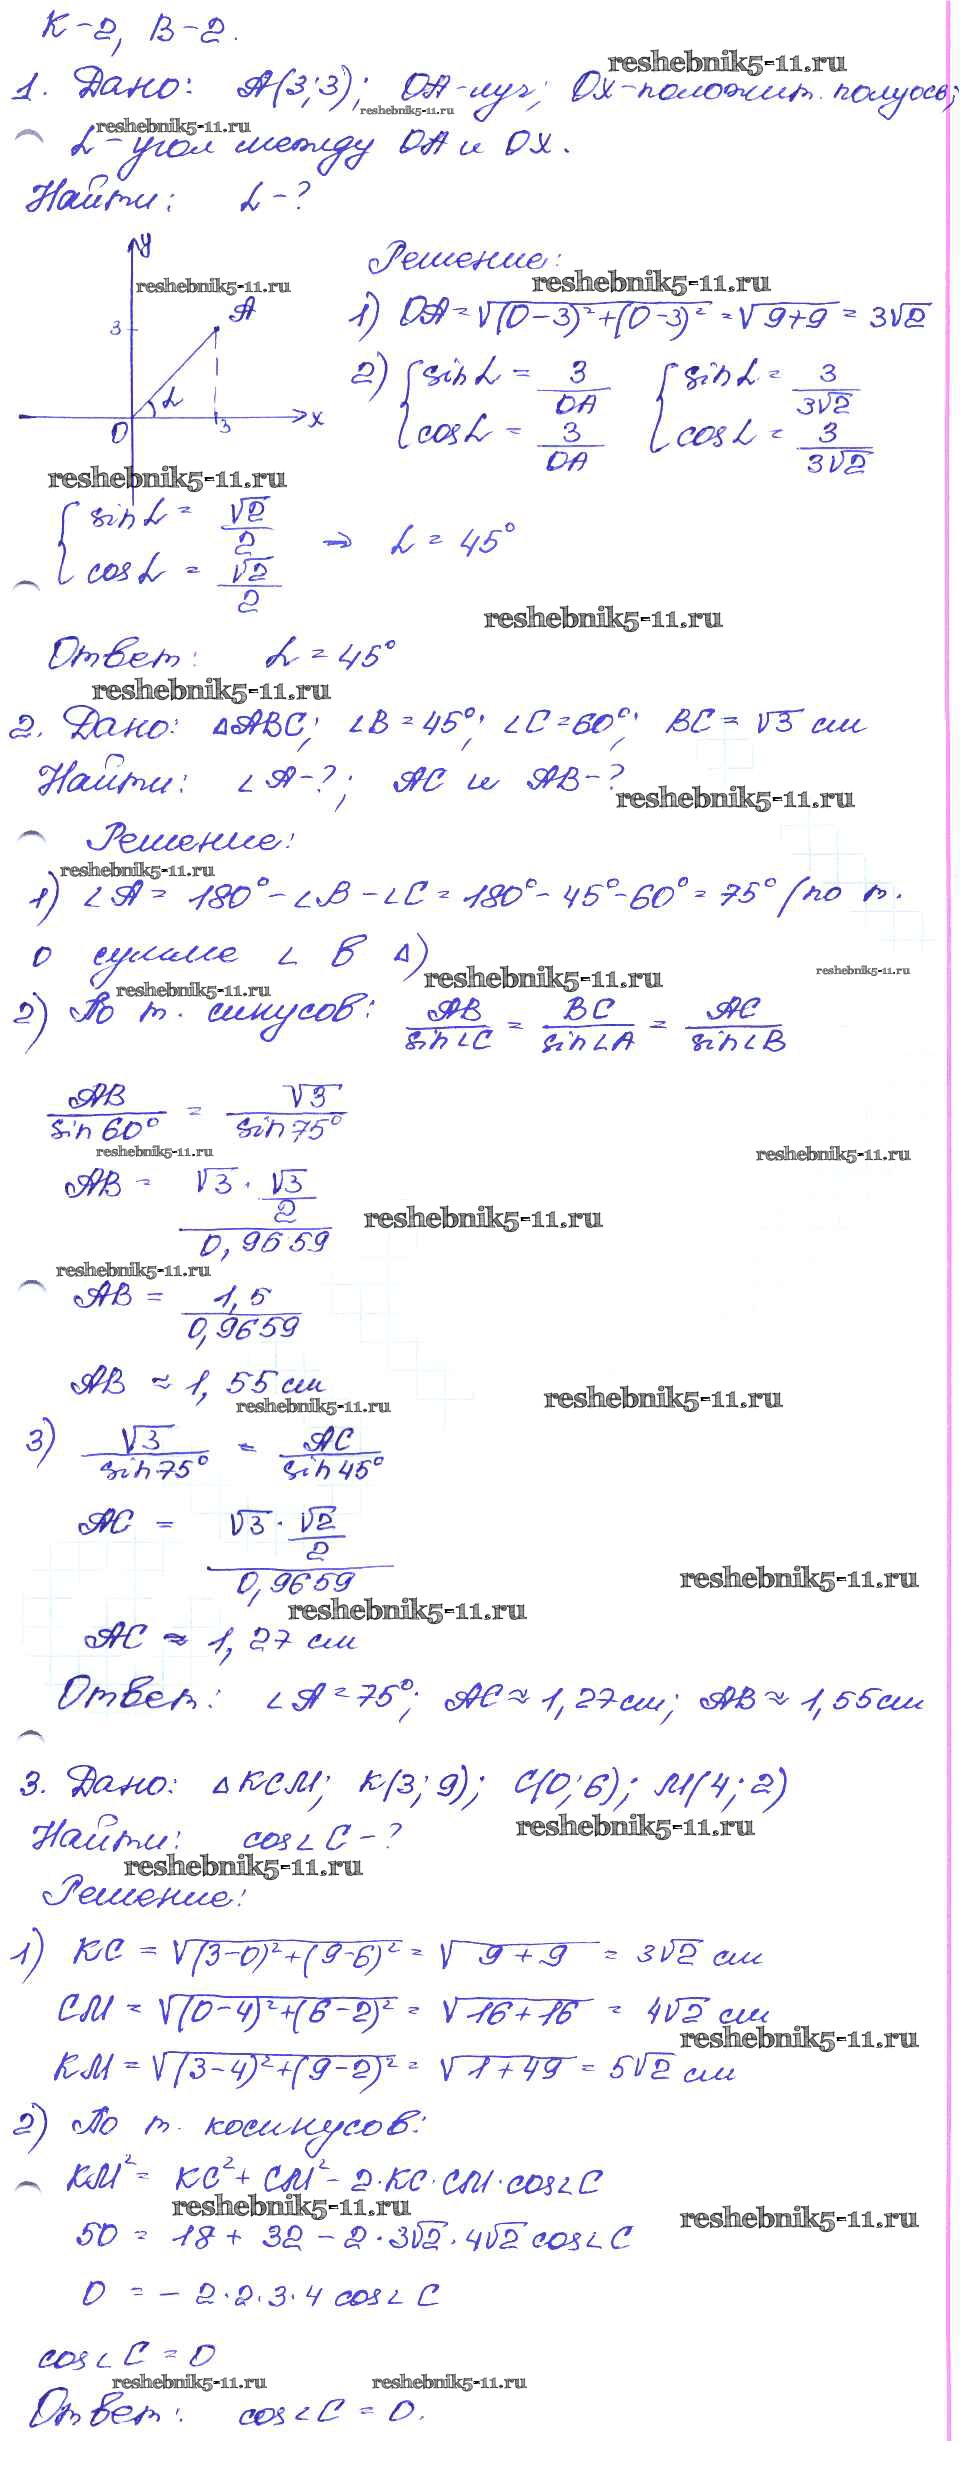 К-2, В-2.
reshebnik5-11.ru
1. Дано: А(3;3); ОА-луч; ОХ-положит. полуось;
reshebnik5-11.ru
reshebnik5-11.ru
L-угол между ОА и ОХ.
Найти: L-?
y
Решение:
reshebnik5-11.ru
reshebnik5-11.ru
А
3
1) ОА=√(0-3)²+(0-3)² = √9+9 = 3√2
2) { sinL = 3/ОА { sinL = 3/3√2
L
cosL = 3/ОА cosL = 3/3√2
О 3 х
reshebnik5-11.ru
{ sinL = √2/2
⇒ L = 45°
cosL = √2/2
reshebnik5-11.ru
Ответ: L = 45°
reshebnik5-11.ru
2. Дано: ΔАВС; ∠В=45°; ∠С=60°; ВС = √3 см
Найти: ∠А-?; АС и АВ-?
reshebnik5-11.ru
Решение:
reshebnik5-11.ru
1) ∠А= 180°-∠В-∠С=180°-45°-60°=75° (по т.
о сумме ∠ в Δ)
reshebnik5-11.ru
reshebnik5-11.ru
reshebnik5-11.ru
2) По т. синусов: АВ/sin∠C = ВС/sin∠A = АС/sin∠B
АВ/sin60° = √3/sin75°
reshebnik5-11.ru
reshebnik5-11.ru
АВ = √3 · √3/2 / 0,9659
reshebnik5-11.ru
reshebnik5-11.ru
АВ = 1,5/0,9659
АВ ≈ 1,55 см
reshebnik5-11.ru
reshebnik5-11.ru
3) √3/sin75° = АС/sin45°
АС = √3 · √2/2 / 0,9659
reshebnik5-11.ru
reshebnik5-11.ru
АС ≈ 1,27 см
Ответ: ∠А=75°; АС≈1,27см; АВ≈1,55см
3. Дано: ΔКСМ; К(3;9); С(0;6); М(4;2)
Найти: cos∠C-?
reshebnik5-11.ru
reshebnik5-11.ru
Решение:
1) КС = √(3-0)²+(9-6)² = √9+9 = 3√2 см
СМ = √(0-4)²+(6-2)² = √16+16 = 4√2 см
reshebnik5-11.ru
КМ = √(3-4)²+(9-2)² = √1+49 = 5√2 см
2) По т. косинусов:
КМ² = КС²+СМ²-2·КС·СМ·cos∠C
reshebnik5-11.ru
reshebnik5-11.ru
50 = 18 + 32 - 2·3√2·4√2 cos∠C
0 = -2·2·3·4 cos∠C
cos∠C = 0
reshebnik5-11.ru
reshebnik5-11.ru
Ответ: cos∠C = 0.